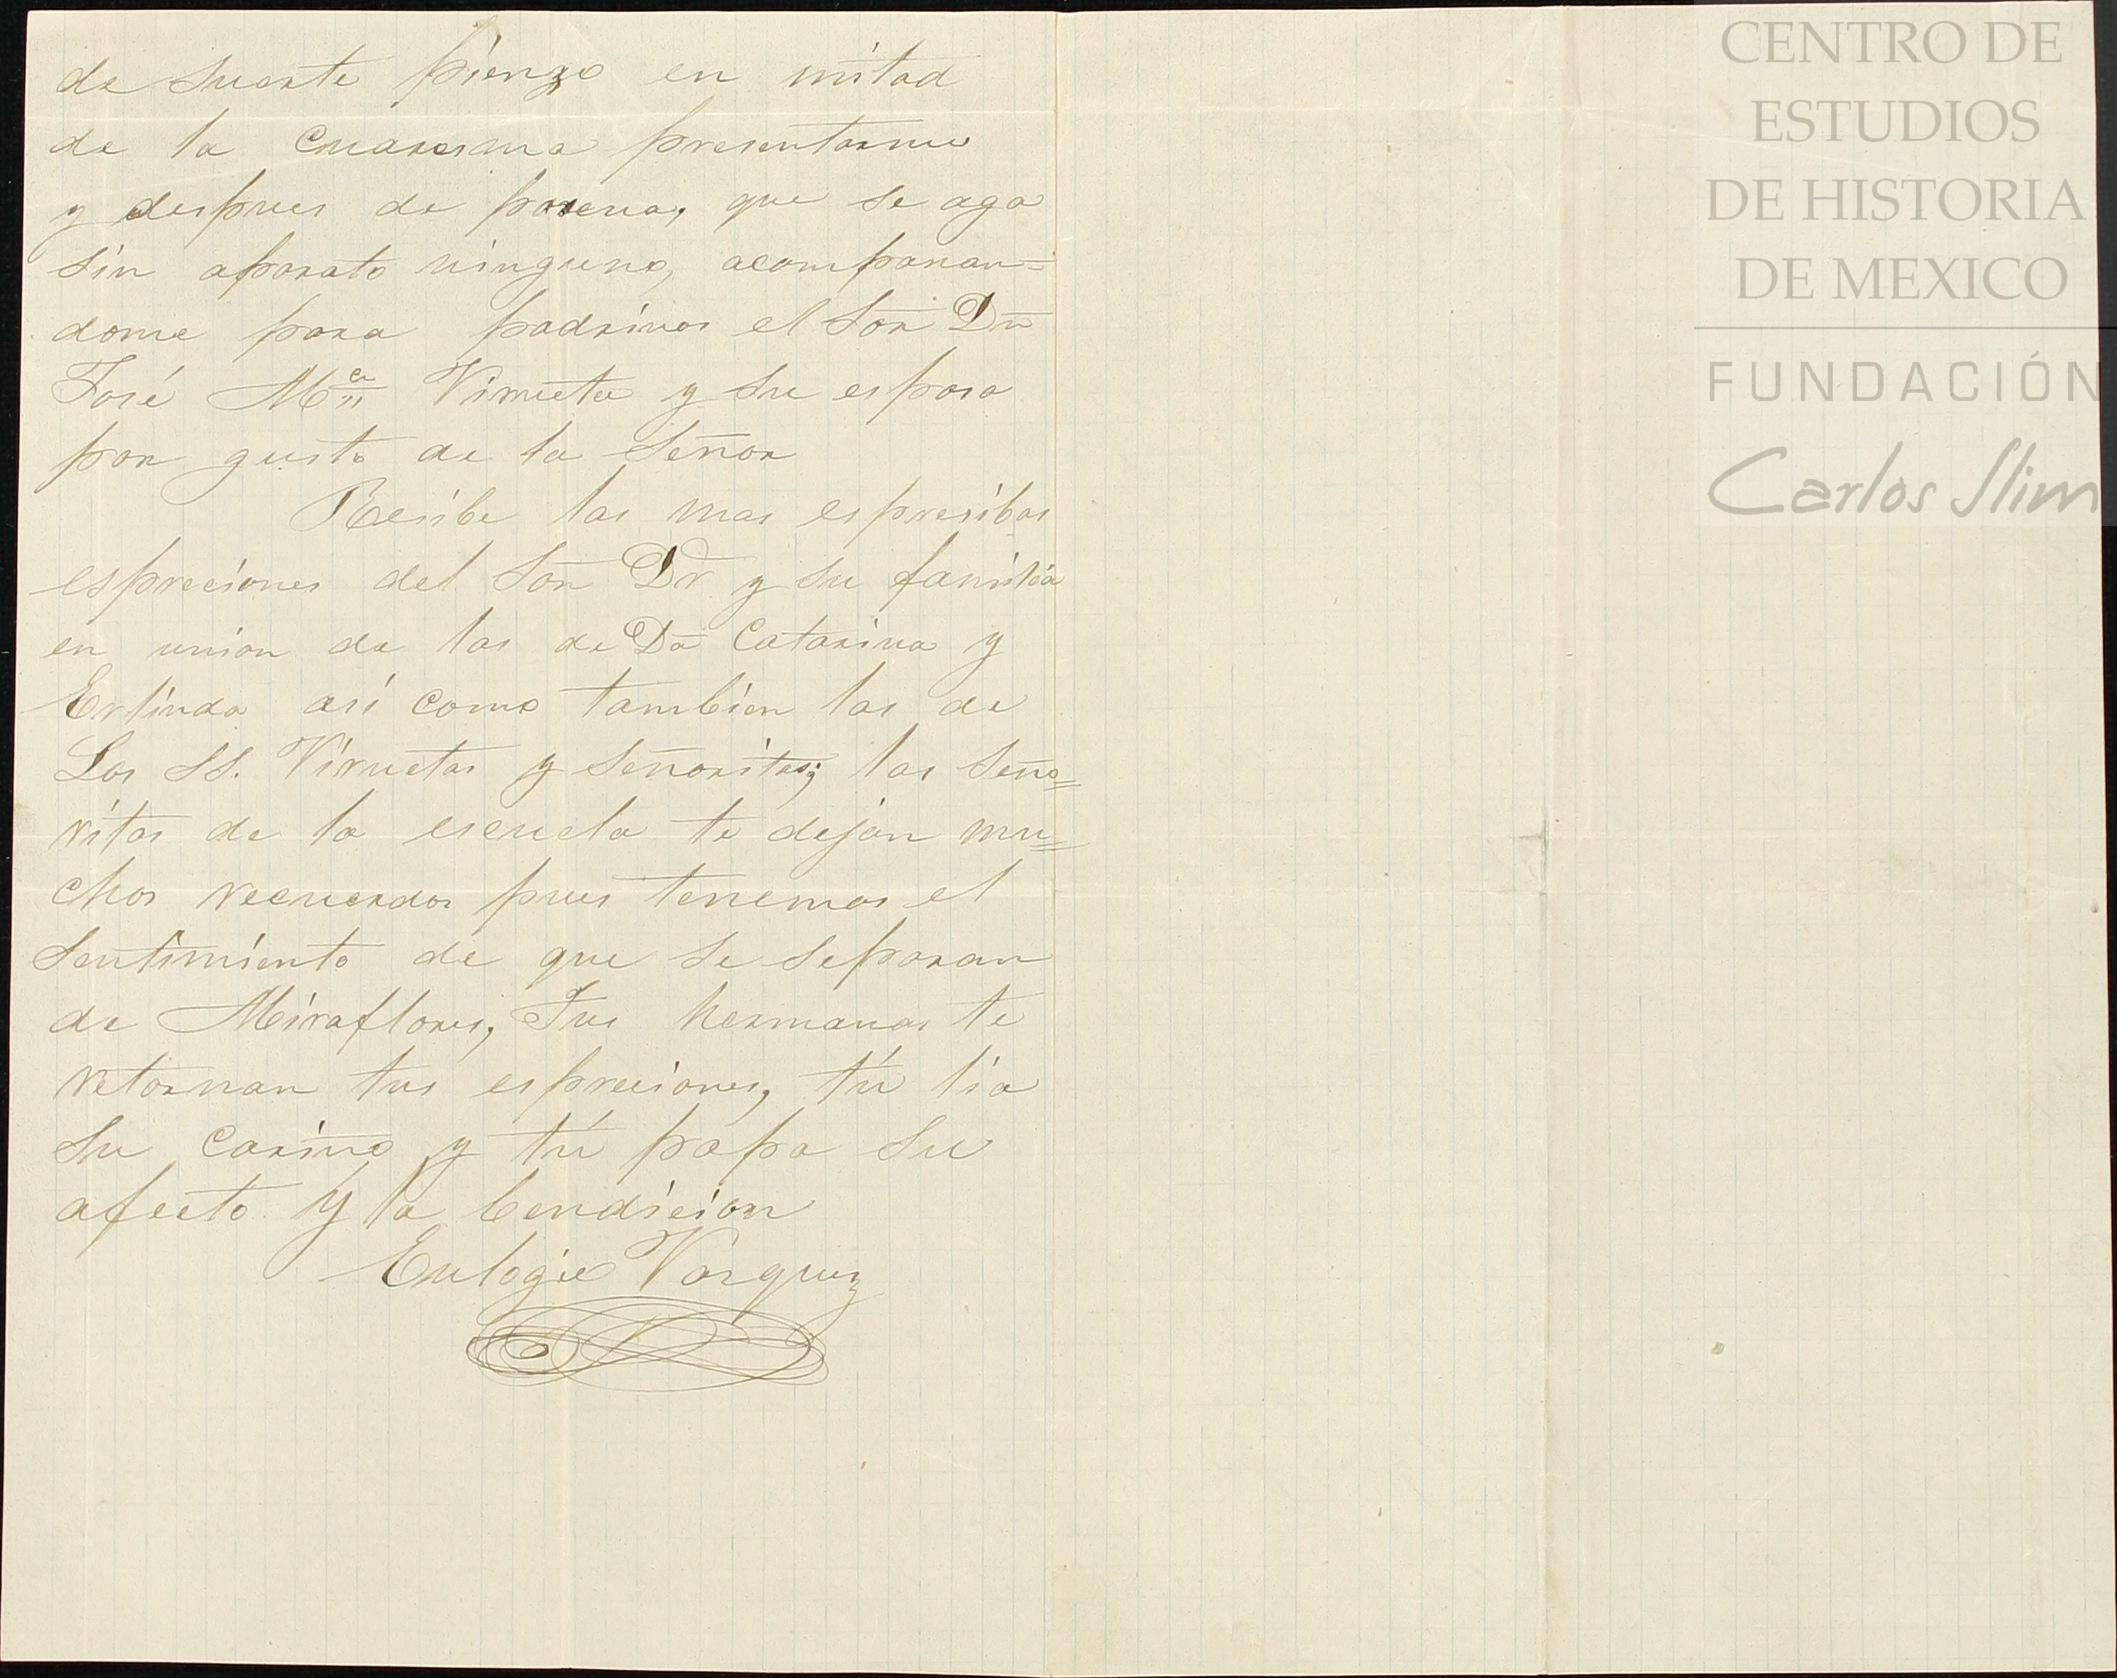 de suerte pienzo en mitad
de la cuaresma presentarme
y despues de pascua, que se aga
sin aparato ninguno, acompanan=
dome para padrinos el Sor Dn
José Ma Virueta y su esposa
por gusto de la Señor
Resibe las mas espresibas
espreciones del Sor Dr. y su familia
en union de las de Da Catarina y
Erlinda asi como tambien las de
Los SS. Viruetas y Señoritas; las Seño=
ritas de la escuela te dejan mu=
chos recuerdos pues tenemos el
sentimiento de que se separan
de Miraflores, Tus hermanas te
retornan tus espreciones, tú tia
su cariño y tú papa su
afecto y la bendicion
Eulogio Vasquez
CENTRO DE
ESTUDIOS
DE HISTORIA
DE MEXICO
FUNDACIÓN
Carlos Slim